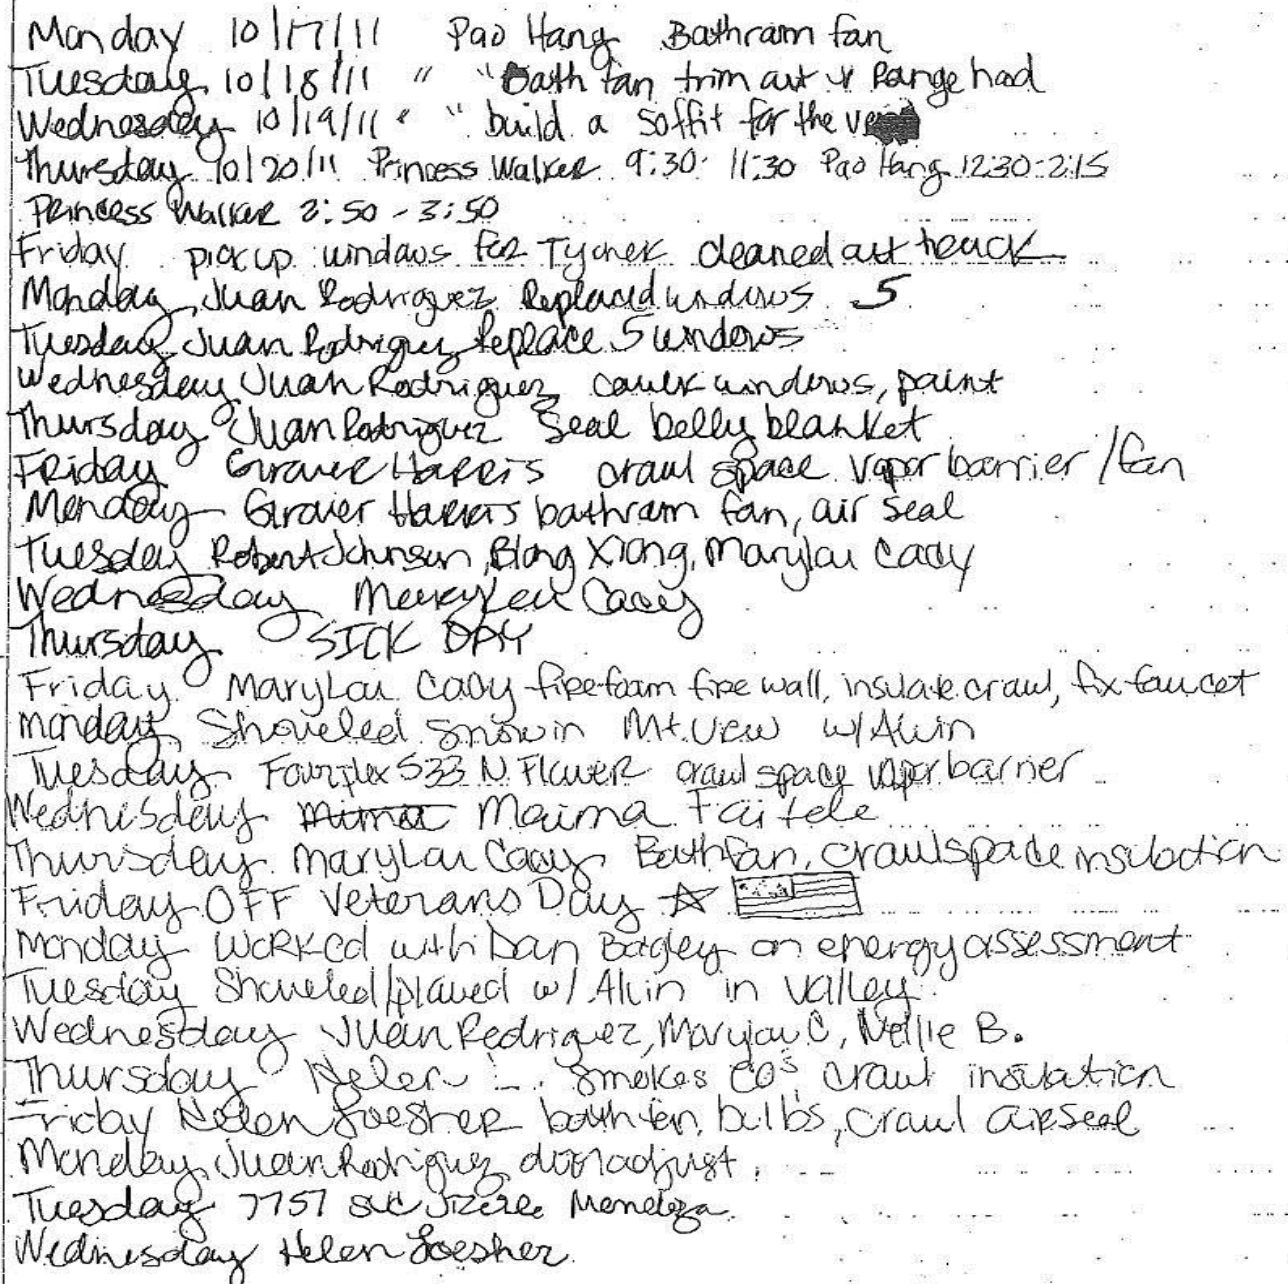 Monday 10/17/11 Pao Hang Bathroom fan
Tuesday 10/18/11 " " Bath fan trim out & Range hood
Wednesday 10/19/11 " " build a soffit for the
Thursday 10/20/11 Princess Walker 9:30-11:30 Pao Hang 12:30-2:15
Princess Walker 2:50-3:50
Friday pickup windows for Tychek cleaned out truck
Monday Juan Rodriguez Replaced windows 5
Tuesday Juan Rodriguez Replace 5 windows
Wednesday Juan Rodriguez caulk windows, paint
Thursday Juan Rodriguez Seal belly blanket
Friday Grover Harris crawl space vapor barrier/fan
Monday Grover Harris bathroom fan, air seal
Tuesday Robert Johnson, Blong Xiong, Marylou Cady
Wednesday MaryLou Cady
Thursday SICK DAY
Friday MaryLou Cady fire foam fire wall, insulate crawl, fix faucet
Monday Shoveled snow in Mt. View w/ Alvin
Tuesday Fourplex 533 N. Flower crawl space vapor barrier
Wednesday Maima Faitele
Thursday MaryLou Cady Bath fan, crawlspace insulation
Friday OFF Veterans Day
Monday Worked with Dan Bagley on energy assessment
Tuesday Shoveled/plowed w/ Alvin in Valley
Wednesday Juan Rodriguez, Marylou C, Nellie B.
Thursday Smokes COs crawl insulation
Friday Helen Loesher bath fan, bulbs, crawl airseal
Monday Juan Rodriguez door adjust.
Tuesday 7757 Mendoza
Wednesday Helen Loesher